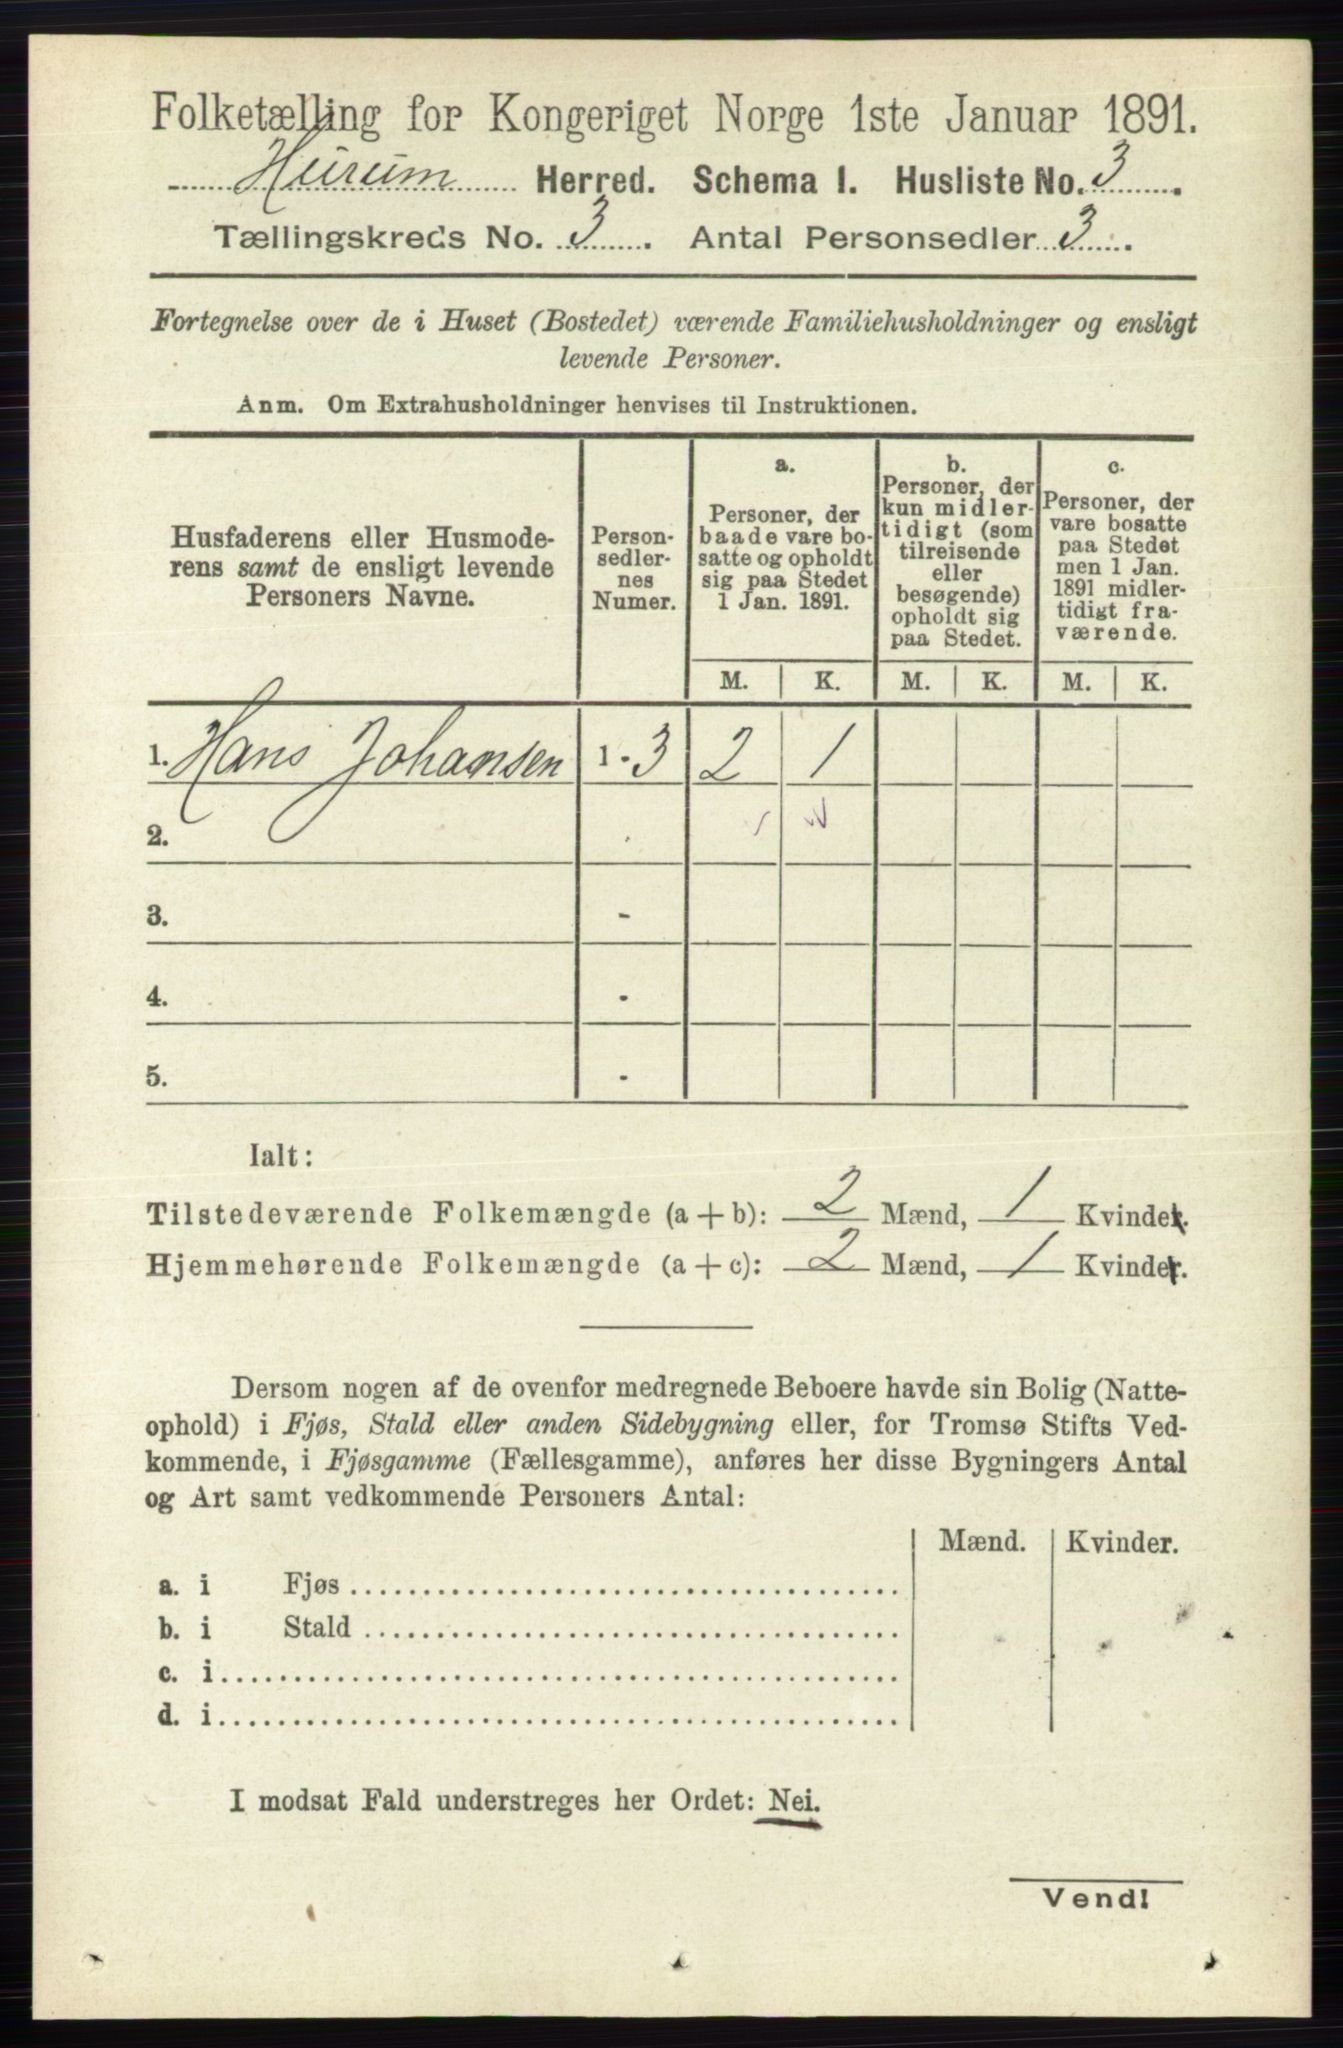 Folketælling for Kongeriget Norge 1ste Januar 1891.
Hurum Herred. Schema I. Husliste No. 3.
Tællingskreds No. 3. Antal Personsedler 3.
Fortegnelse over de i Huset (Bostedet) værende Familiehusholdninger og ensligt
levende Personer.
Anm. Om Extrahusholdninger henvises til Instruktionen.
Husfaderens eller Husmode-
rens samt de ensligt levende
Personers Navne.
Person-
sedler-
nes
Numer.
a.
Personer, der
baade vare bo-
satte og opholdt
sig paa Stedet
1 Jan. 1891.
b.
Personer, der
kun midler-
tidigt (som
tilreisende
eller
besøgende)
opholdt sig
paa Stedet.
c.
Personer, der
vare bosatte
paa Stedet
men 1 Jan.
1891 midler-
tidigt fra-
værende.
M. K. M. K. M. K.
1. Hans Johansen 1 - 3 2 1
2. -
3. -
4. -
5. -
Ialt:
Tilstedeværende Folkemængde (a + b): 2 Mænd, 1 Kvinder.
Hjemmehørende Folkemængde (a + c): 2 Mænd, 1 Kvinder.
Dersom nogen af de ovenfor medregnede Beboere havde sin Bolig (Natte-
ophold) i Fjøs, Stald eller anden Sidebygning eller, for Tromsø Stifts Ved-
kommende, i Fjøsgamme (Fællesgamme), anføres her disse Bygningers Antal
og Art samt vedkommende Personers Antal:
Mænd. Kvinder.
a. i Fjøs
b. i Stald
c. i
d. i
I modsat Fald understreges her Ordet: Nei.
Vend!